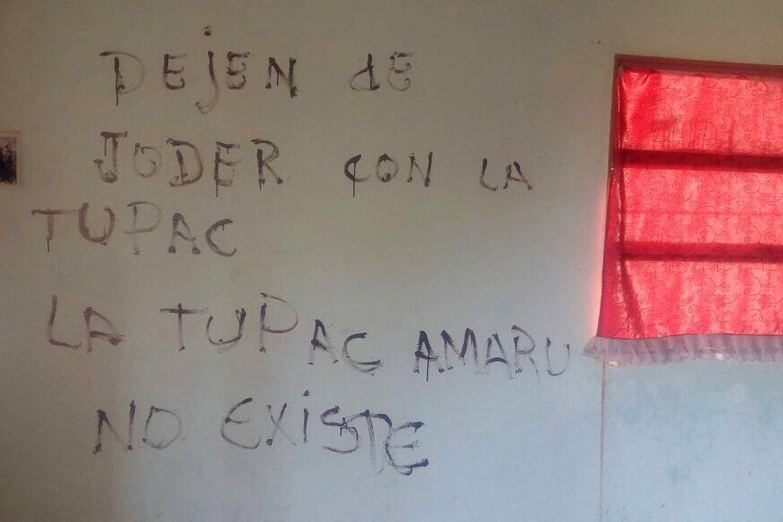 DEJEN dE
JODER CON LA
TUPAC
LA TUPAC AMARU
NO EXiSTE